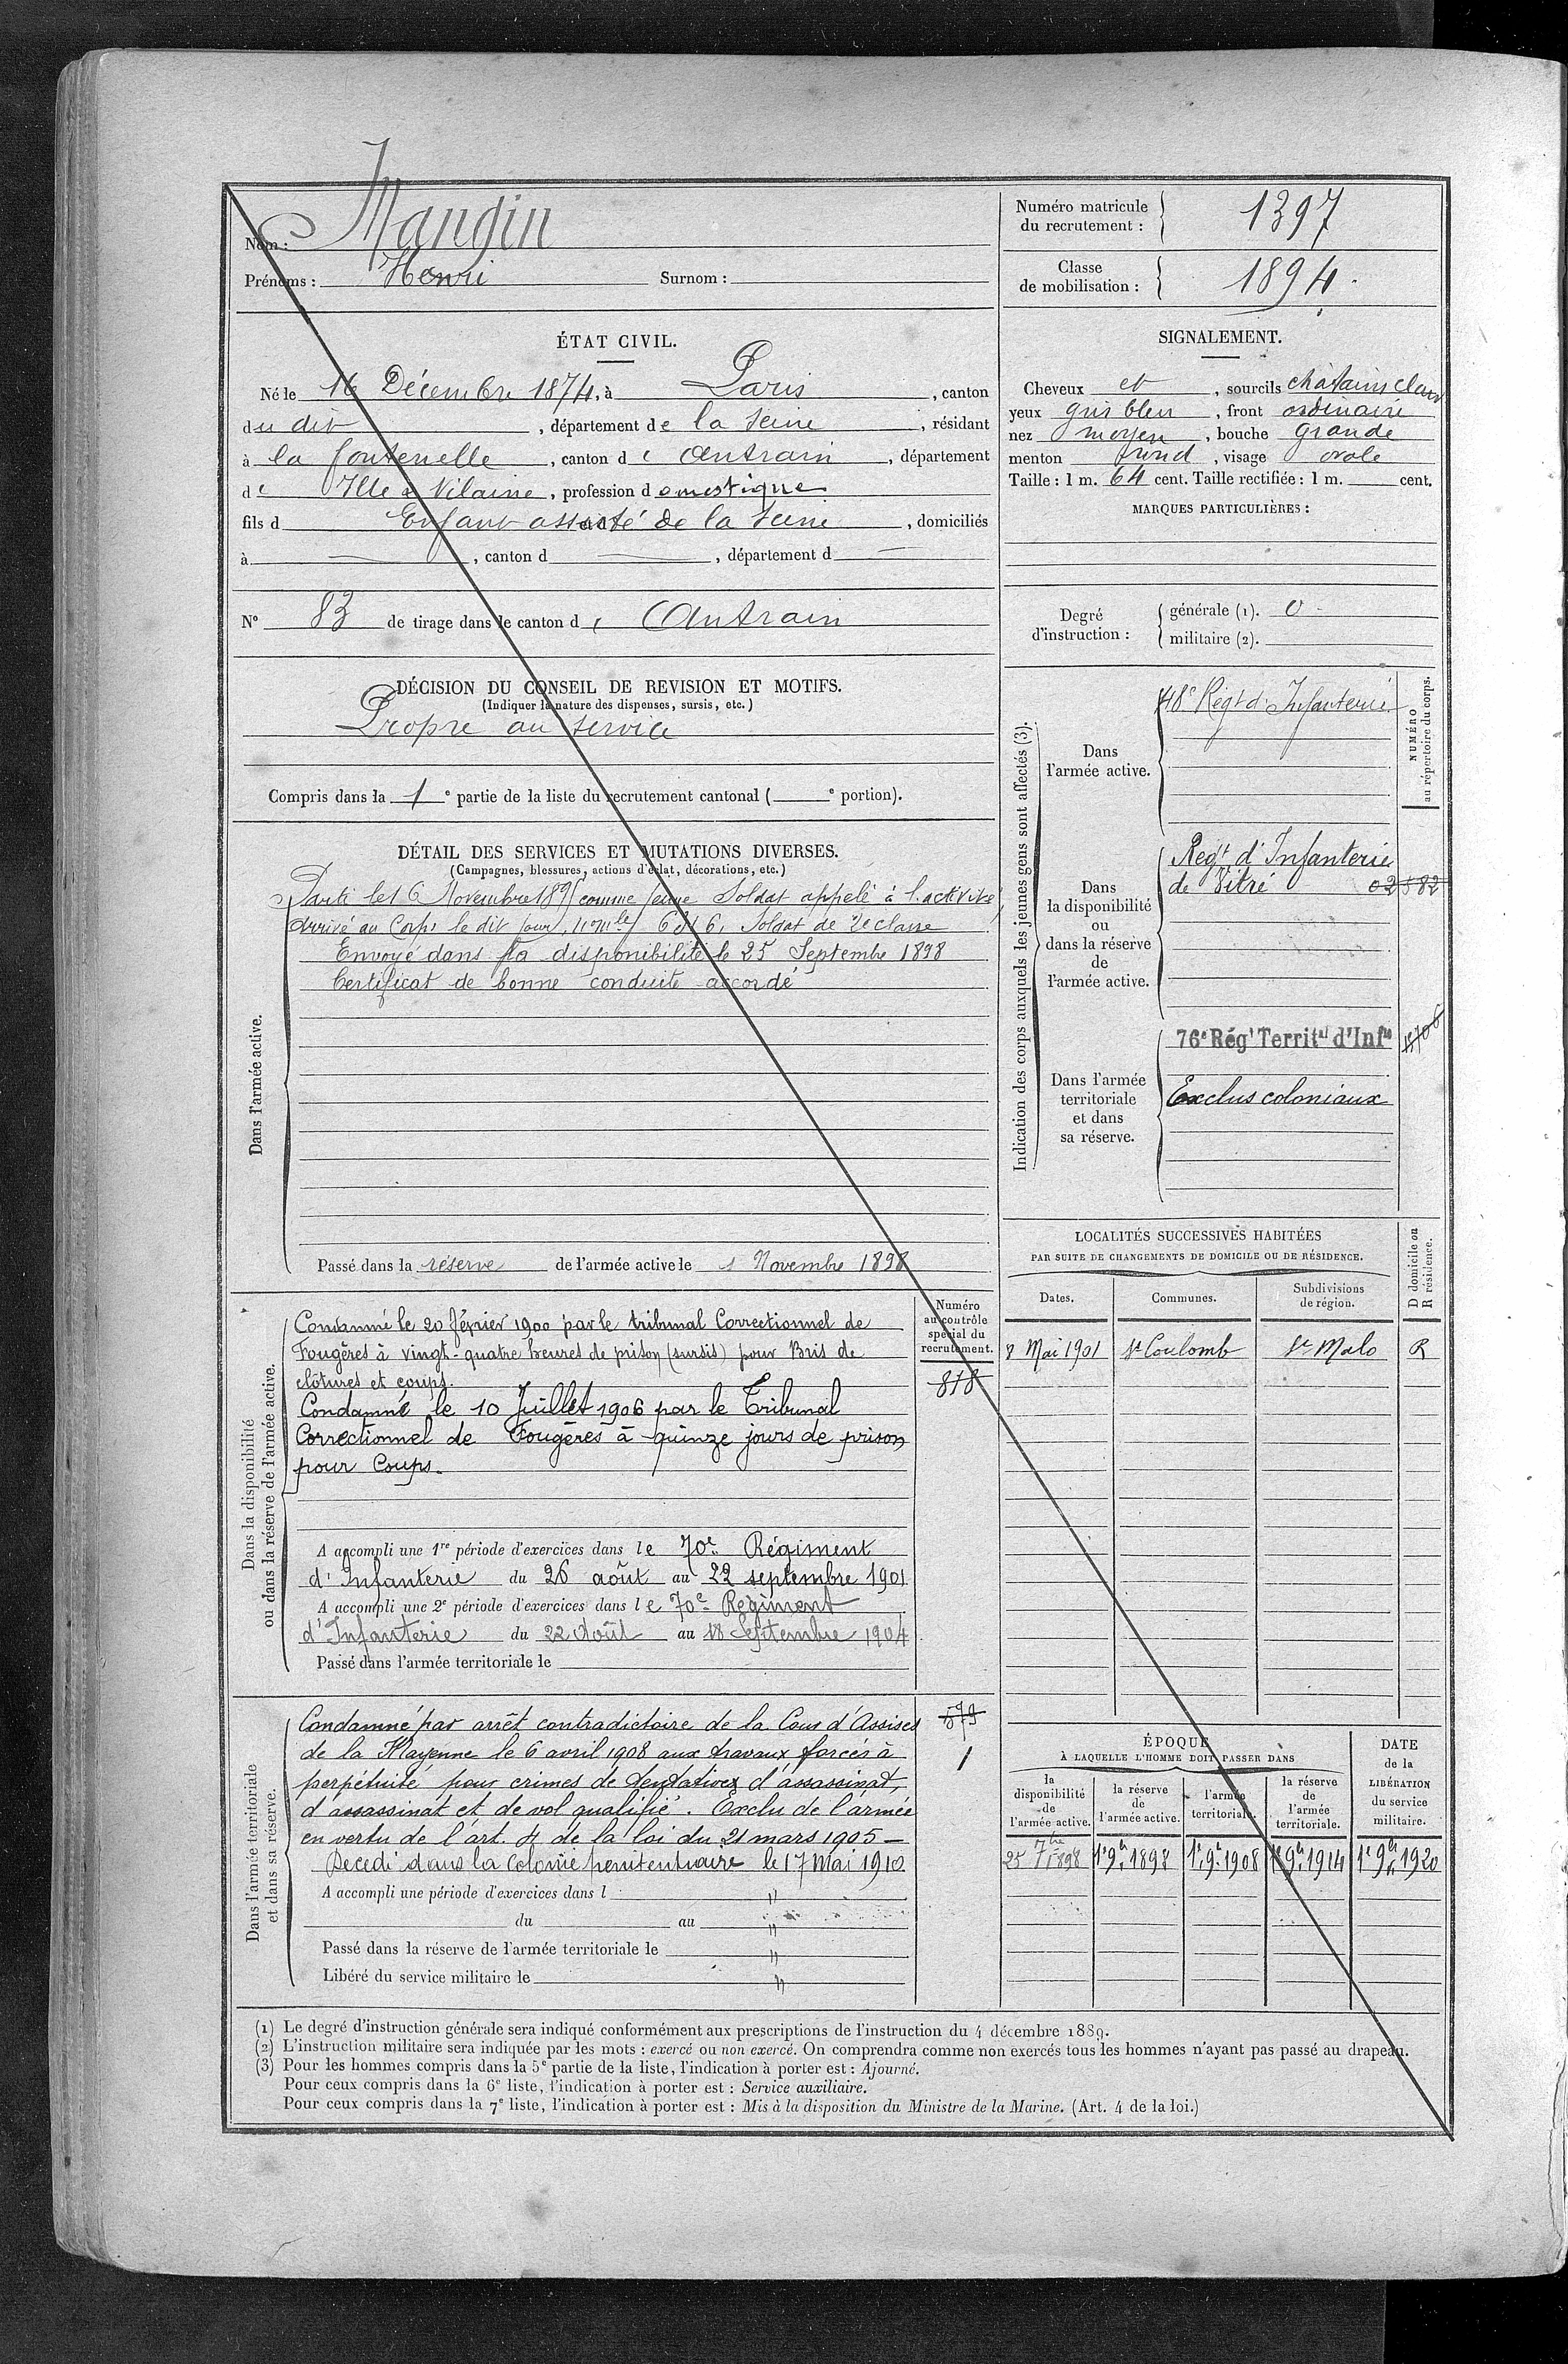 Nom : Mangin
Prénoms : Henri Surnom :
Numéro matricule du recrutement : 1397
Classe de mobilisation : 1894.
ÉTAT CIVIL.
Né le 16 Décembre 1874, à Paris, canton
du dit, département de la Seine, résidant
à la fontenelle, canton d'Antrain, département
d' Ille & Vilaine, profession domestique
fils d Enfant assisté de la Seine, domiciliés
à, canton d, département d
N° 83 de tirage dans le canton d' Antrain
DÉCISION DU CONSEIL DE REVISION ET MOTIFS.
(Indiquer la nature des dispenses, sursis, etc.)
Propre au service
Compris dans la 1 e partie de la liste du recrutement cantonal ( e portion).
DÉTAIL DES SERVICES ET MUTATIONS DIVERSES.
(Campagnes, blessures, actions d'éclat, décorations, etc.)
Dans l'armée active.
Parti le 16 Novembre 1895 comme jeune Soldat appelé à l'activité,
arrivé au Corps le dit jour, Soldat de 2e classe
Envoyé dans la disponibilité le 25 Septembre 1898
Certificat de bonne conduite accordé
Passé dans la réserve de l'armée active le 1 Novembre 1898
Dans la disponibilité
ou dans la réserve de l'armée active.
Numéro
au contrôle
spécial du
recrutement.
818
Condamné le 20 février 1900 par le tribunal Correctionnel de
Fougères à vingt-quatre heures de prison (sursis) pour Bris de
clôtures et coups.
Condamné le 10 Juillet 1906 par le Tribunal
Correctionnel de Fougères à quinze jours de prison
pour Coups.
A accompli une 1re période d'exercices dans le 70e Régiment
d'Infanterie du 26 août au 22 septembre 1901
A accompli une 2e période d'exercices dans le 70e Régiment
d'Infanterie du 22 Août au 18 Septembre 1904
Passé dans l'armée territoriale le
Dans l'armée territoriale
et dans sa réserve.
1
Condamné par arrêt contradictoire de la Cour d'Assises
de la Mayenne le 6 avril 1908 aux travaux forcés à
perpétuité pour crimes de tentatives d'assassinat,
d'assassinat et de vol qualifié. Exclu de l'armée
en vertu de l'art. 4 de la loi du 21 mars 1905 -
Décédé dans la Colonie pénitentiaire le 17 Mai 1910
A accompli une période d'exercices dans l "
du au "
Passé dans la réserve de l'armée territoriale le "
Libéré du service militaire le "
SIGNALEMENT.
Cheveux et, sourcils chatains clairs
yeux gris bleu, front ordinaire
nez moyen, bouche grande
menton rond, visage ovale
Taille : 1 m. 64 cent. Taille rectifiée : 1 m. cent.
MARQUES PARTICULIÈRES :
Degré d'instruction :
générale (1). 0
militaire (2).
Indication des corps auxquels les jeunes gens sont affectés (3).
NUMÉRO
au répertoire du corps.
Dans
l'armée active.
48e Régt d'Infanterie
Dans
la disponibilité
ou
dans la réserve
de
l'armée active.
Regt d'Infanterie
de Vitré 02582
Dans l'armée
territoriale
et dans
sa réserve.
76e Régt Territal d'Infie
Exclus coloniaux
LOCALITÉS SUCCESSIVES HABITÉES
PAR SUITE DE CHANGEMENTS DE DOMICILE OU DE RÉSIDENCE.
Dates. Communes. Subdivisions de région. D domicile ou R résidence.
8 Mai 1901 St Coulomb St Malo R
ÉPOQUE
À LAQUELLE L'HOMME DOIT PASSER DANS
la disponibilité de l'armée active.
la réserve de l'armée active.
l'armée territoriale.
la réserve de l'armée territoriale.
DATE de la LIBÉRATION du service militaire.
25 7bre 1898 1er 9bre 1898 1er 9bre 1908 1er 9bre 1914 1er 9bre 1920
(1) Le degré d'instruction générale sera indiqué conformément aux prescriptions de l'instruction du 4 décembre 1889.
(2) L'instruction militaire sera indiquée par les mots : exercé ou non exercé. On comprendra comme non exercés tous les hommes n'ayant pas passé au drapeau.
(3) Pour les hommes compris dans la 5e partie de la liste, l'indication à porter est : Ajourné.
Pour ceux compris dans la 6e liste, l'indication à porter est : Service auxiliaire.
Pour ceux compris dans la 7e liste, l'indication à porter est : Mis à la disposition du Ministre de la Marine. (Art. 4 de la loi.)